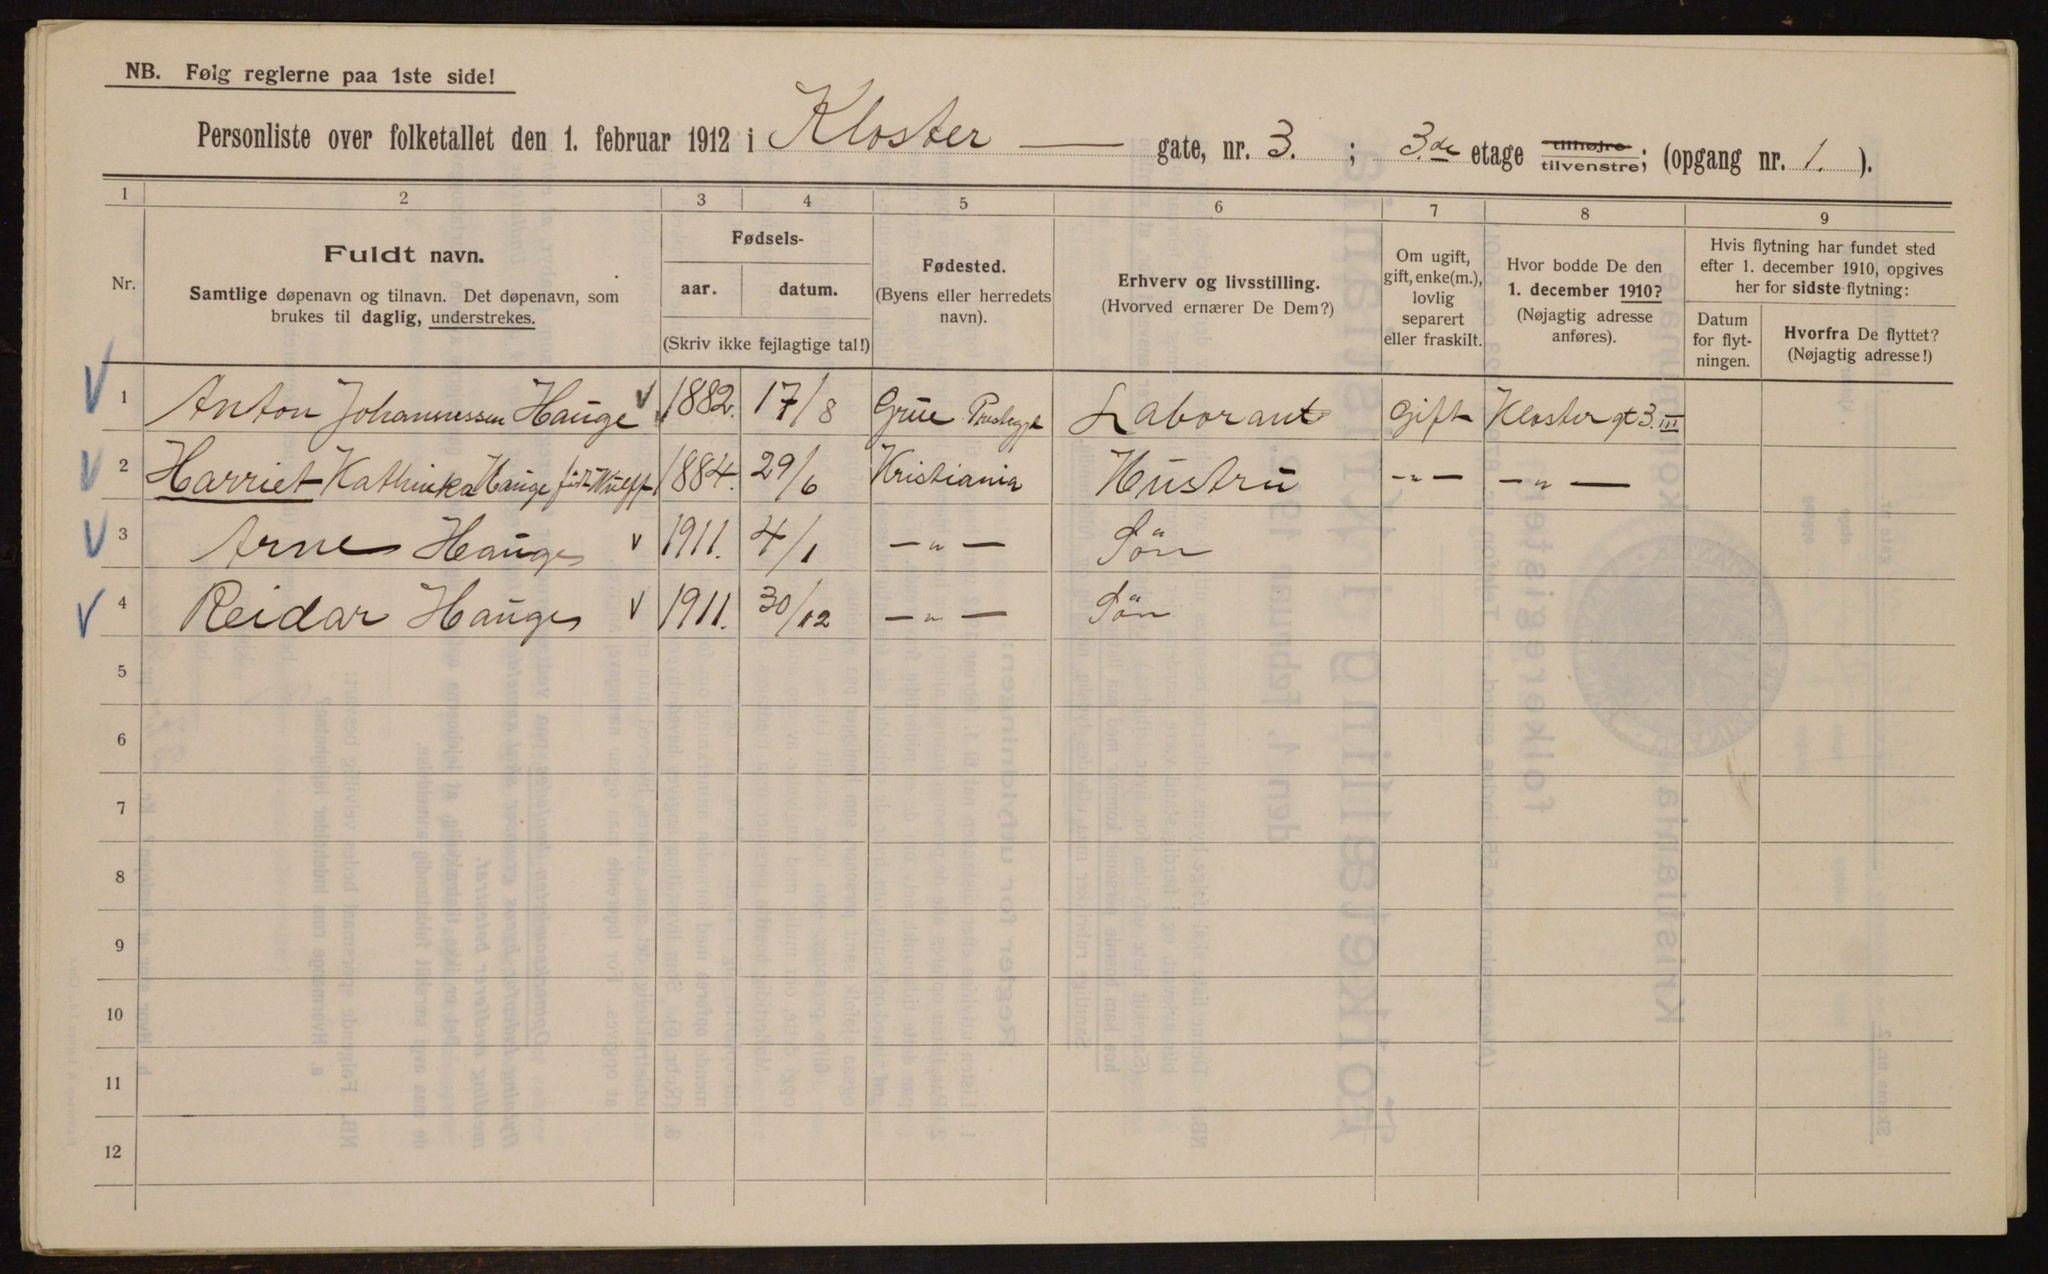 NB. Følg reglerne paa 1ste side!
Personliste over folketallet den 1. februar 1912 i Kloster — gate, nr. 3. ; 3.de etage tilhøjre tilvenstre; (opgang nr. 1. ).
1 2 3 4 5 6 7 8 9
Nr.
Fuldt navn.
Samtlige døpenavn og tilnavn. Det døpenavn, som
brukes til daglig, understrekes.
Fødsels-
aar. datum.
(Skriv ikke fejlagtige tal!)
Fødested.
(Byens eller herredets
navn).
Erhverv og livsstilling.
(Hvorved ernærer De Dem?)
Om ugift,
gift, enke(m.),
lovlig
separert
eller fraskilt.
Hvor bodde De den
1. december 1910?
(Nøjagtig adresse
anføres).
Hvis flytning har fundet sted
efter 1. december 1910, opgives
her for sidste flytning:
Datum
for flyt-
ningen.
Hvorfra De flyttet?
(Nøjagtig adresse!)
1 Anton Johannessen Hauge 1882. 17/8 Grue Laborant Gift Kloster gt 3. III
2 Harriet Kathinka Hauge født Wulff 1884. 29/6 Kristiania Hustru —"— —"—
3 Arne Hauge 1911. 4/1 —"— Sön
4 Reidar Hauge 1911. 30/12 —"— Sön
5
6
7
8
9
10
11
12